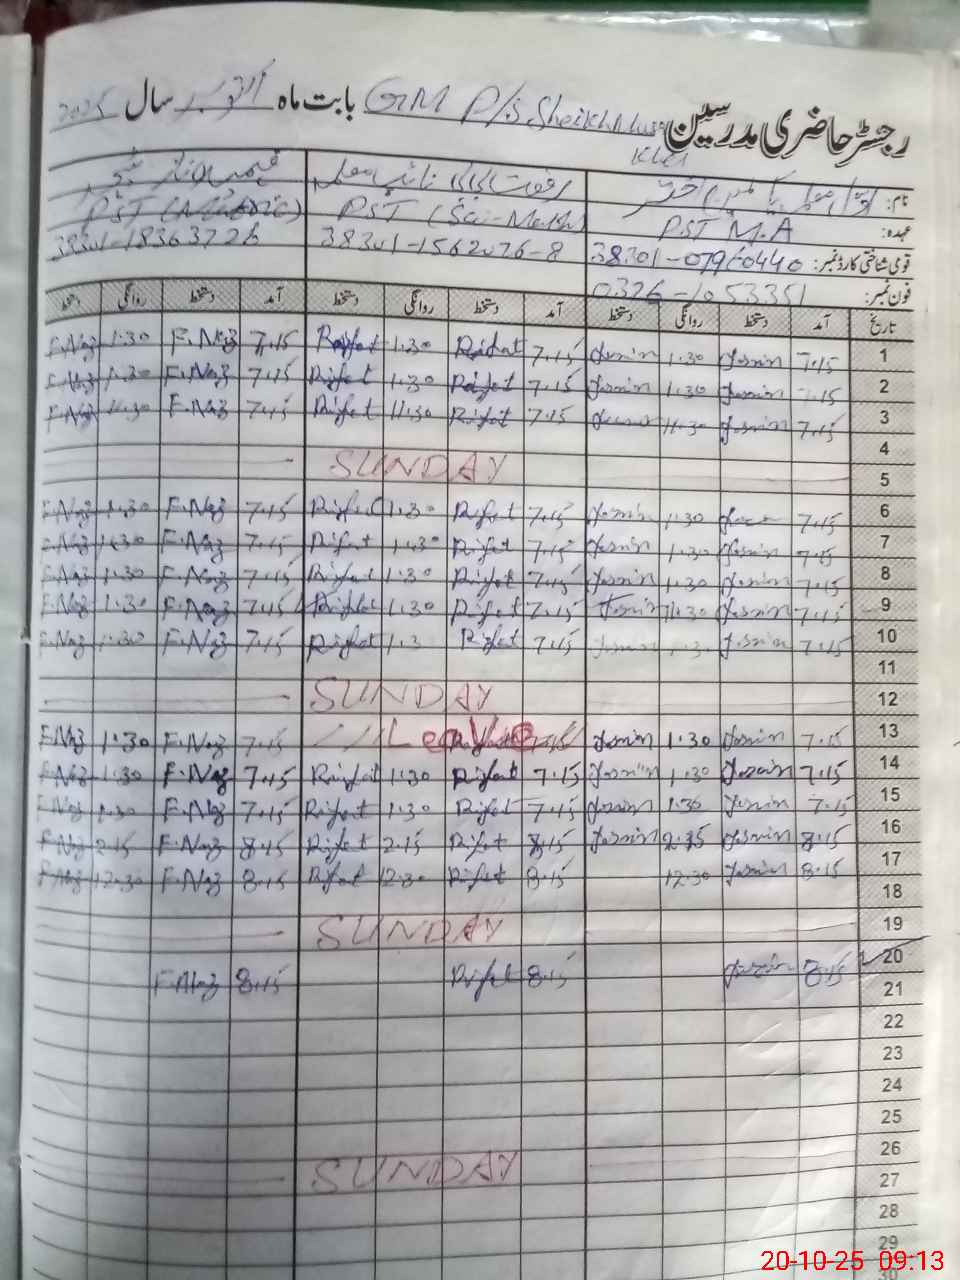 رجسٹر حاضری مدرسین GM P/S Sheikh Musa Khel بابت ماہ اکتوبر سال 2025
نام:
عہدہ: PST M.A PST (Sci-Math) PST (Matric)
قومی شناختی کارڈ نمبر: 38301-1562076-8 38301-1836372
فون نمبر: 0326-1053351
تاریخ آمد دستخط روانگی دستخط آمد دستخط روانگی دستخط آمد دستخط روانگی دستخط
1 7.15 Jasmin 1.30 Jasmin 7.15 Rifat 1.30 Rifat 7.15 F.Naz 1.30 F.Naz
2 7.15 Jasmin 1.30 Jasmin 7.15 Rifat 1.30 Rifat 7.15 F.Naz 1.30 F.Naz
3 7.15 Jasmin 11.30 7.15 Rifat 11.30 Rifat 7.15 F.Naz 11.30 F.Naz
4
5 SUNDAY
6 7.15 1.30 Jasmin 7.15 Rifat 1.30 Rifat 7.15 F.Naz 1.30 F.Naz
7 7.15 Jasmin 1.30 Jasmin 7.15 Rifat 1.30 Rifat 7.15 F.Naz 1.30 F.Naz
8 7.15 Jasmin 1.30 Jasmin 7.15 Rifat 1.30 Rifat 7.15 F.Naz 1.30 F.Naz
9 7.15 Jasmin 11.30 Jasmin 7.15 Rifat 1.30 Rifat 7.15 F.Naz 1.30 F.Naz
10 7.15 Jasmin 1.3 Jasmin 7.15 Rifat 1.3 Rifat 7.15 F.Naz 1.30 F.Naz
11
12 SUNDAY
13 7.15 Jasmin 1.30 Jasmin Leave 7.15 F.Naz 1.30 F.Naz
14 7.15 Jasmin 1.30 Jasmin 7.15 Rifat 1.30 Rifat 7.15 F.Naz 1.30 F.Naz
15 7.15 Jasmin 1.30 Jasmin 7.15 Rifat 1.30 Rifat 7.15 F.Naz 1.30 F.Naz
16 8.15 Jasmin 2.15 Jasmin 8.15 Rifat 2.15 Rifat 8.15 F.Naz 2.15 F.Naz
17 8.15 Jasmin 12.30 8.15 Rifat 12.30 Rifat 8.15 F.Naz 12.30 F.Naz
18
19 SUNDAY
20 8.15 Jasmin 8.15 Rifat 8.15 F.Naz
21
22
23
24
25
26
SUNDAY
27
28
29
30
20-10-25 09:13